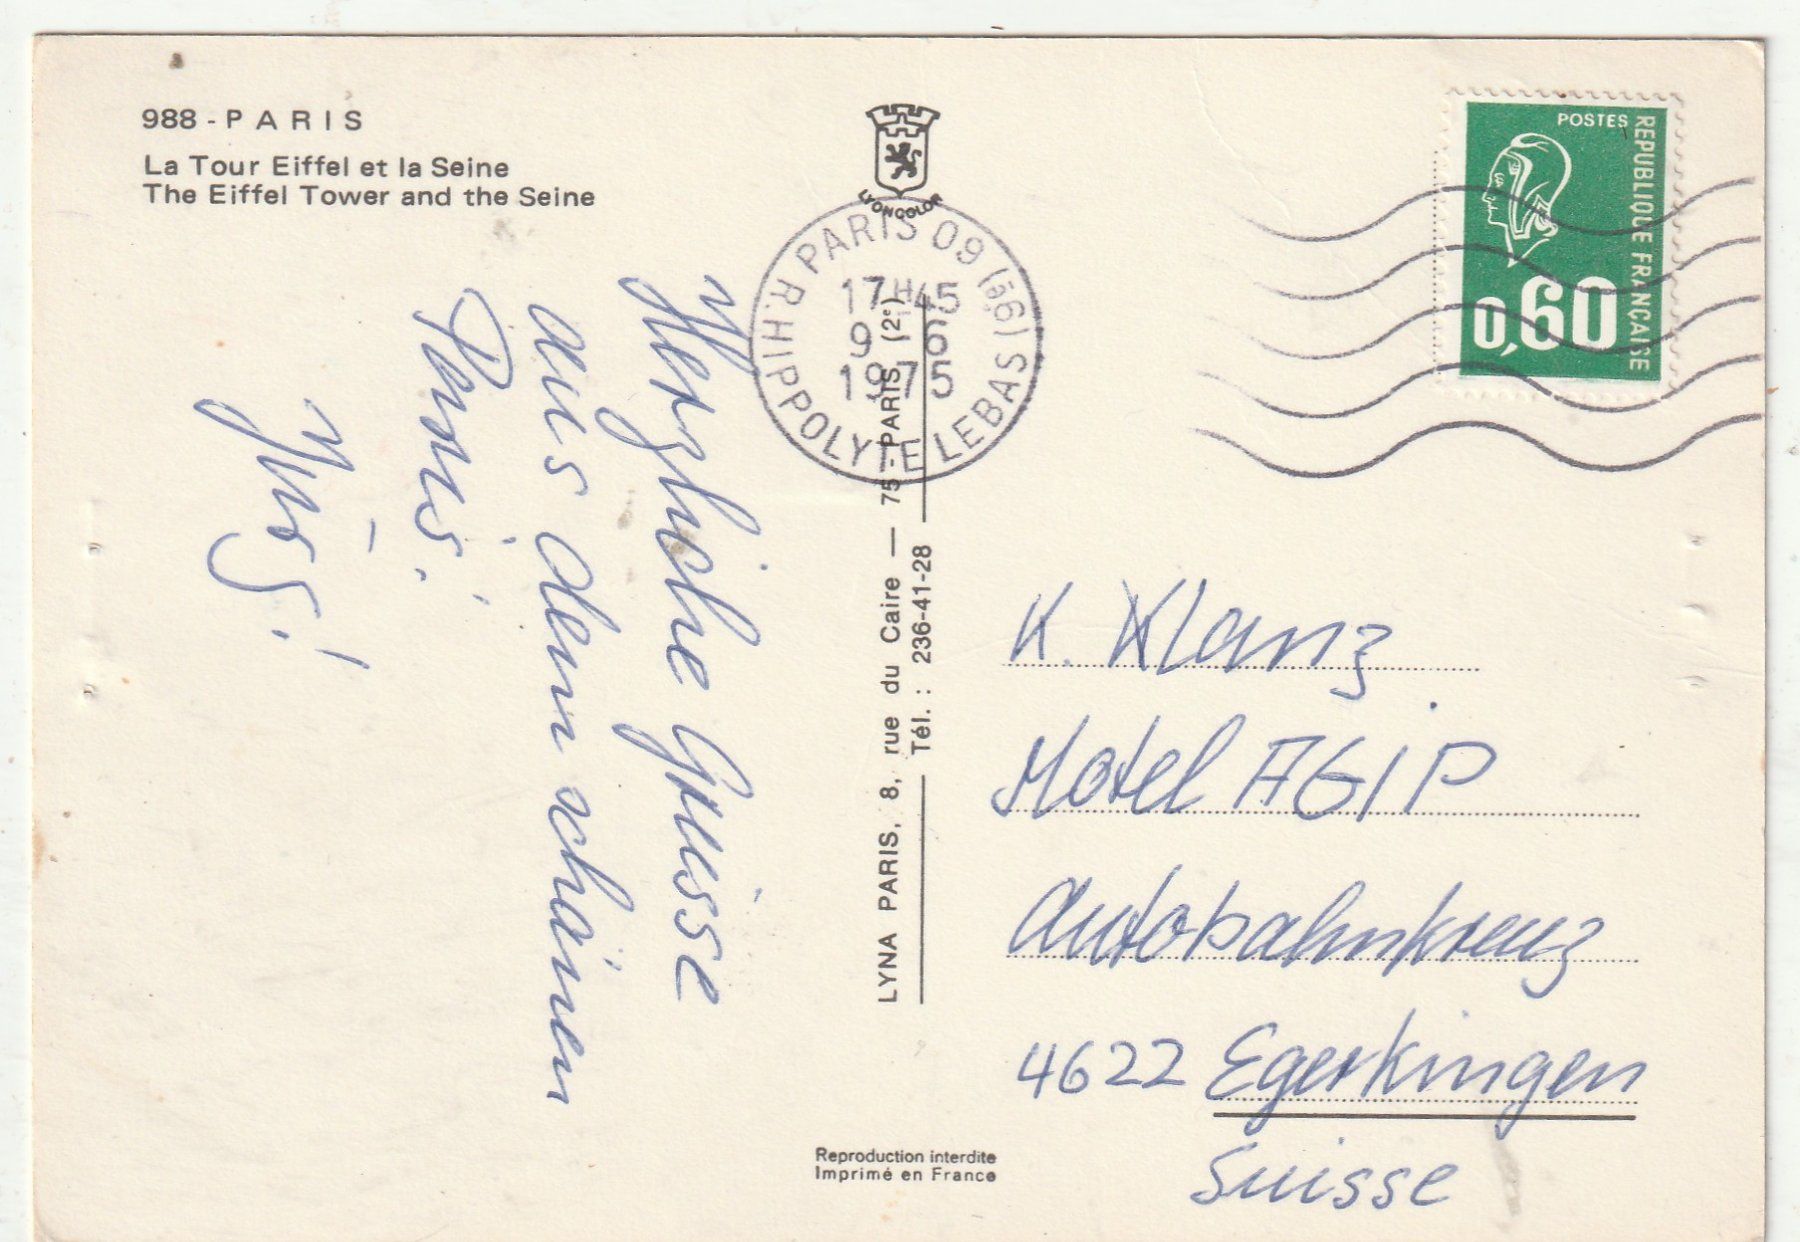 988 - PARIS
La Tour Eiffel et la Seine
The Eiffel Tower and the Seine
LYONCOLOR
PARIS 09 (9e)
R. HIPPOLYTE LEBAS
17H45
9 6
1975
POSTES
REPUBLIQUE FRANÇAISE
0,60
Herzliche Grüsse
aus dem schönen
Paris.
LYNA PARIS, 8, rue du Caire — 75 - PARIS (2e)
Tél. : 236-41-28
K. Klanz
Motel AGIP
Autobahnkreuz
4622 Egerkingen
Suisse
Reproduction interdite
Imprimé en France